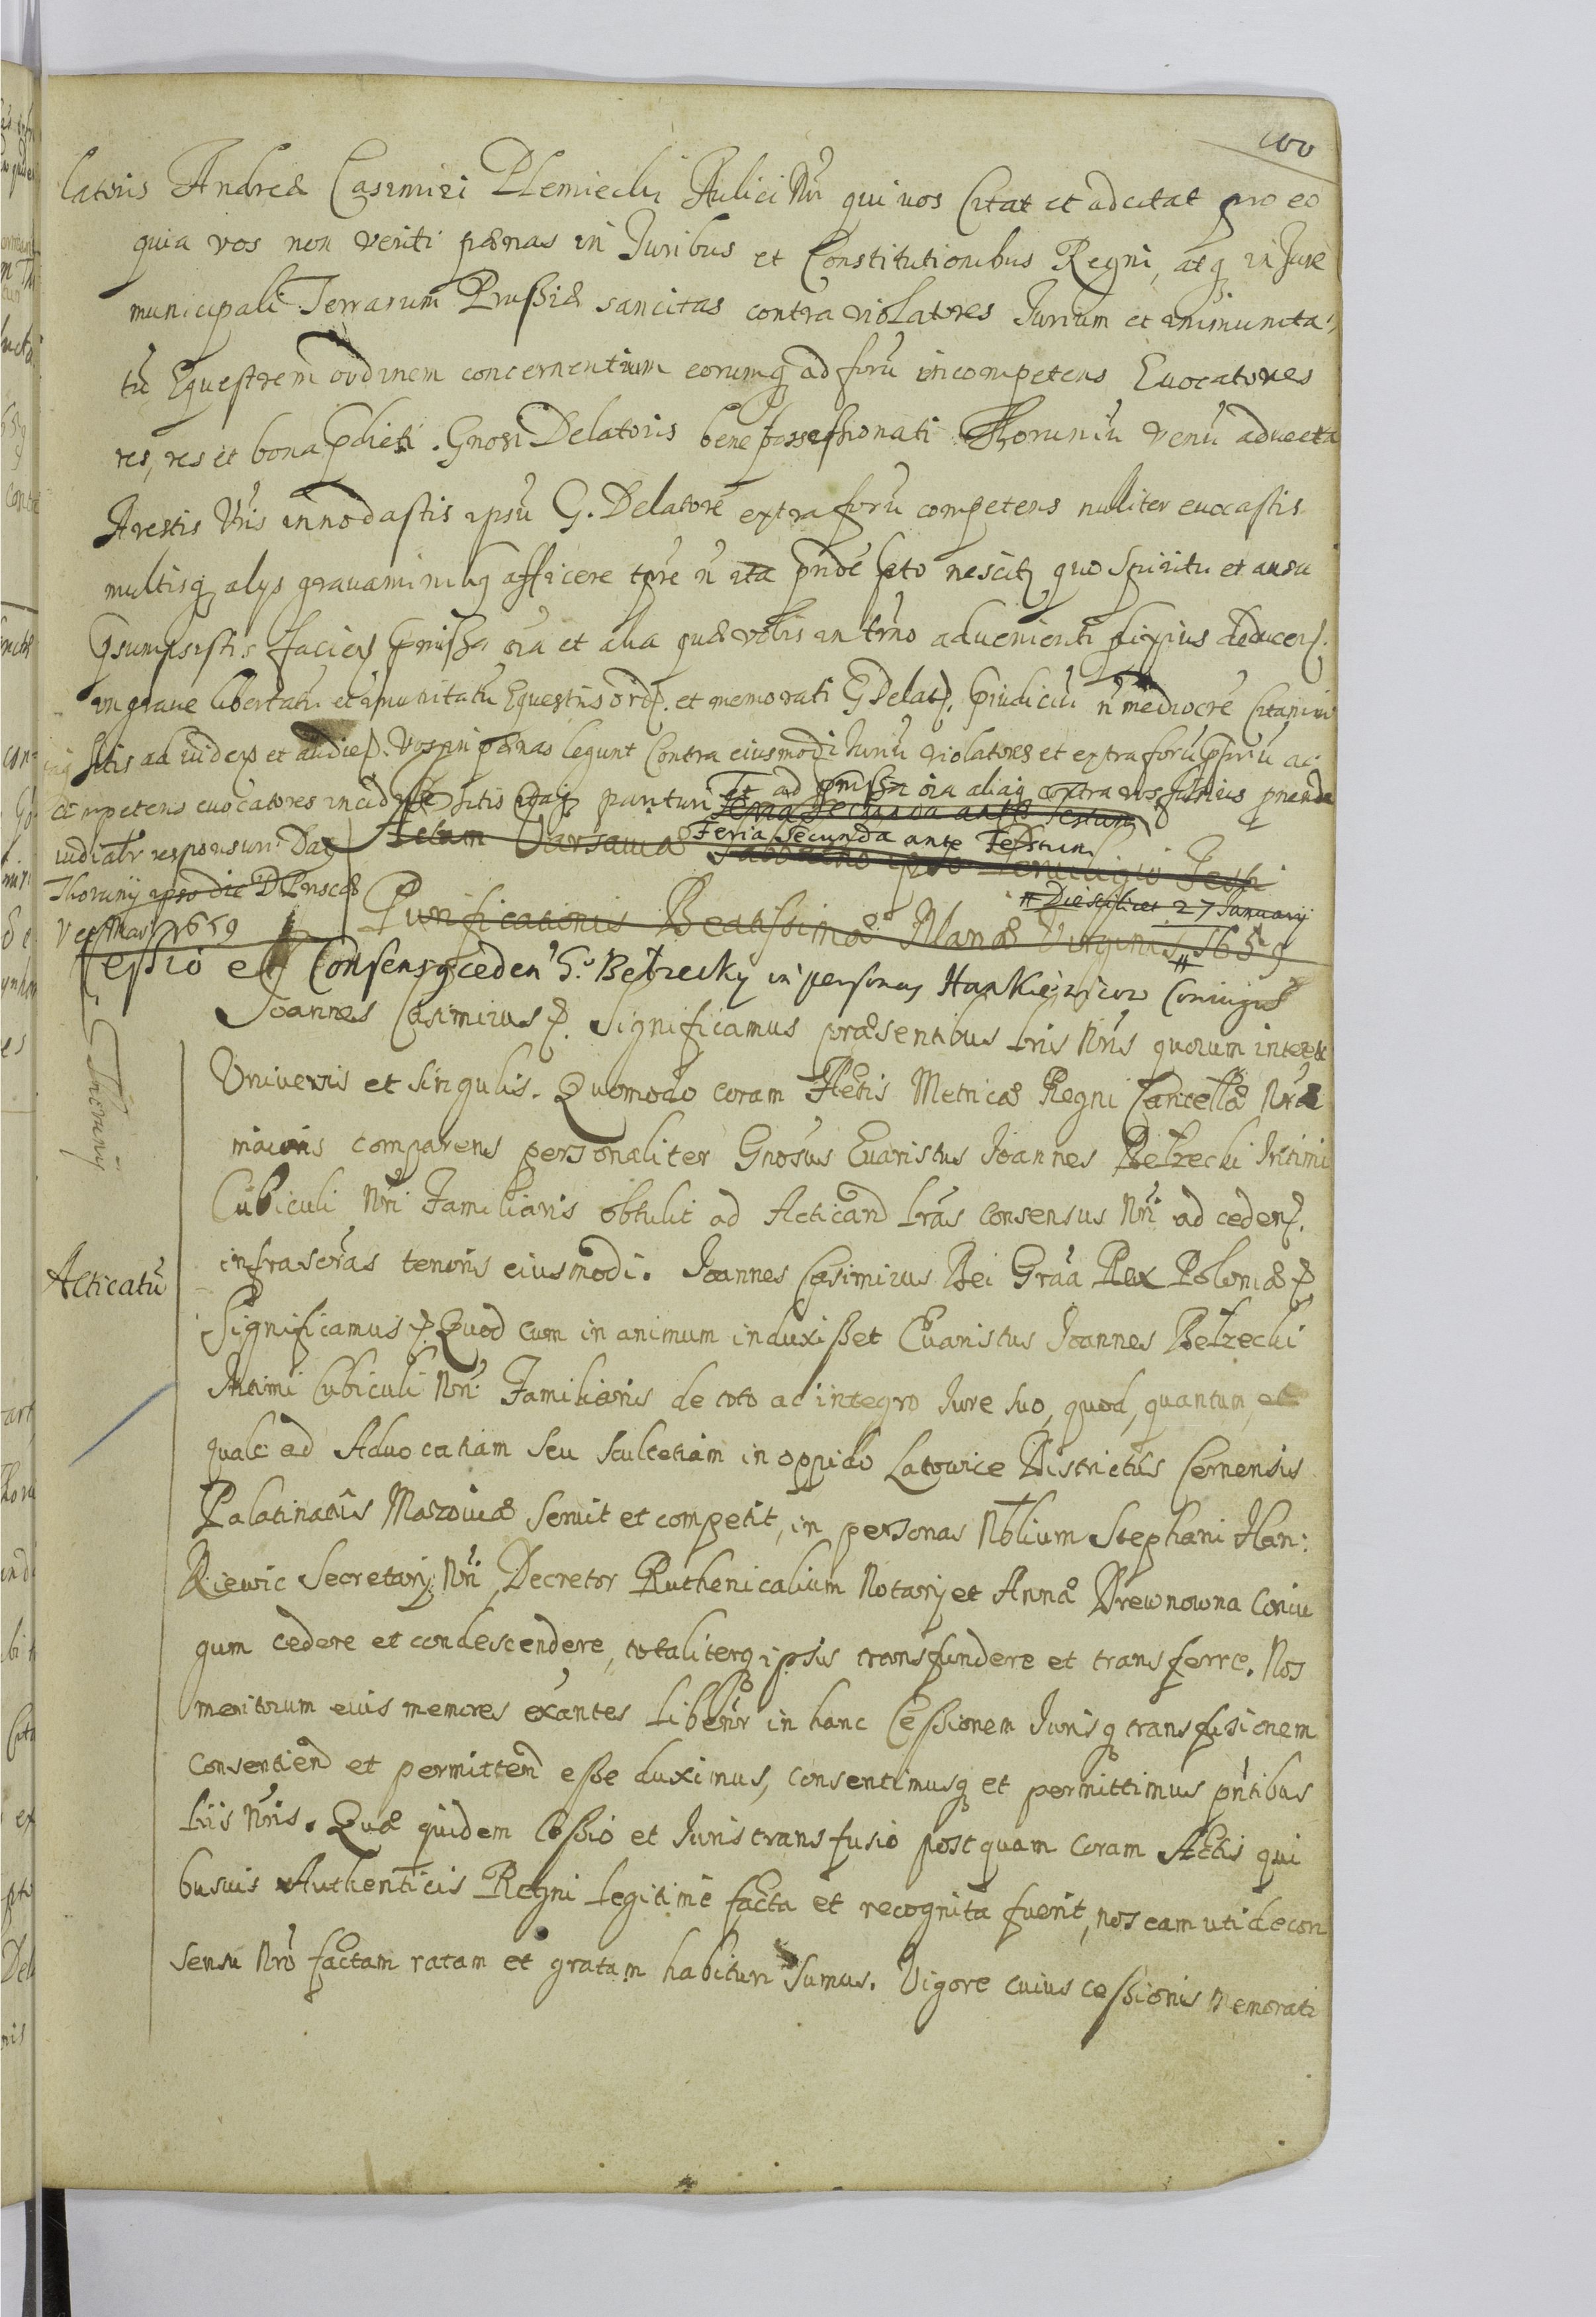 latoris Andreæ Casimiri Plemiecki Aulici Nri qui vos Citat et adcitat pro eo
quia vos non veriti pœnas in Juribus et Constitutionibus Regni, atq in Jure
municipali Terrarum Prußiæ sancitas contra violatores Jurium et immunita:
tũ Equestrem ordinem concernentium eorumq ad forũ incompetens Euocatores
res, res et bona pdicti Gnosi Delatoris bene possessionati Thoruniũ venũ aduecta
Arestis Vris innodastis ipsũ G. Delatorẽ extra forũ competens nulliter euocastis
multisq alys grauaminibq afficere nescitq quo spiritu et ausu
psumpsistis et alia quæ vobis in trño aduenienti deducen.
in graue libertatũ et imunitatũ Equestris ord. et memorati G Delat. piudiciũ ñ mediocrẽ Citamini
sitis ad viden et audien. Vos in pœnas legum Contra eiusmodi Juriũ violatores et extra forũ
competens euocatores incidisse sitis puniri Et ad pmissa oia aliaq contra vos
Feria Secunda ante Festum
iudialr responsuri. Dat
Actum Varsauiæ Feria Secunda ante Festum
Thoruny ipso die
Festi
Purificationis Beatissimæ Mariæ Virginis 1659
Die scilicet 27 January
1659
Cessio et Consensq ceden G. Betzecky in personas Hankiewicow Coniugu
Thoruny
Joannes Casimirus p. Significamus præsentibus Lris Nris quorum interest
Vniuersis et singulis. Quomodo coram Actis Metricæ Regni Cancellæ Nræ
maioris comparens personaliter Gnosus Euaristus Joannes Betzecki Intimi
Cubiculi Nri Familiaris obtulit ad Acticand Lras consensus Nri ad ceden.
Acticatũ
infrascras tenoris eiusmodi. Joannes Casimirus Dei Grãa Rex Poloniæ p
Significamus p. Quod cum in animum induxißet Euaristus Joannes Betzecki
Intimi Cubiculi Nri Familiaris de toto ac integro Jure suo, quod, quantum, et
quale ad Aduocatiam seu scultetiam in oppido Latowice Districtus Cernensis
Palatinatus Mazouiæ seruit et competit, in personas Nobilium Stephani Han:
kiewic Secretary Nri Decretor Ruthenicalium Notary et Annæ Drewnowna Coniu
gum cedere et condescendere, totaliterq ipsis transfundere et transferre. Nos
meritorum eius memores exãntes Libentr in hanc Ceßionem Jurisq transfusionem
consentiend et permittend eße duximus, consentimusq et permittimus pntibus
Lris Nris. Quæ quidem Ceßio et Juris transfusio postquam coram Actis qui
busuis Authenticis Regni legitime facta et recognita fuerit, nos eam uti de con
sensu Nro factam ratam et gratam habituri sumus. Vigore cuius ceßionis memorati